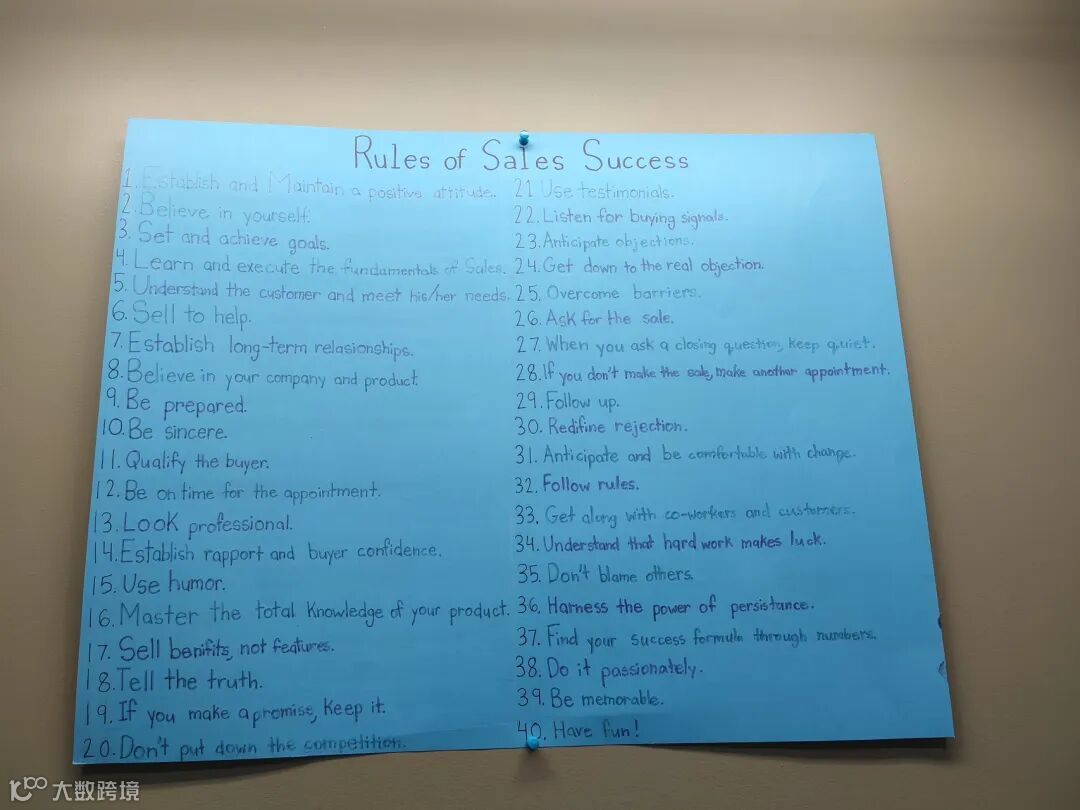 Rules of Sales Success
1. Establish and Maintain a positive attitude.
2. Believe in yourself.
3. Set and achieve goals.
4. Learn and execute the fundamentals of Sales.
5. Understand the customer and meet his/her needs.
6. Sell to help.
7. Establish long-term relasionships.
8. Believe in your company and product.
9. Be prepared.
10. Be sincere.
11. Qualify the buyer.
12. Be on time for the appointment.
13. Look professional.
14. Establish rapport and buyer confidence.
15. Use humor.
16. Master the total Knowledge of your product.
17. Sell benifits, not features.
18. Tell the truth.
19. If you make a promise, Keep it.
20. Don't put down the competition.
21 Use testimonials.
22. Listen for buying signals.
23. Anticipate objections.
24. Get down to the real objection.
25. Overcome barriers.
26. Ask for the sale.
27. When you ask a closing question, keep quiet.
28. If you don't make the sale, make another appointment.
29. Follow up.
30. Redifine rejection.
31. Anticipate and be comfortable with change.
32. Follow rules.
33. Get along with co-workers and customers.
34. Understand that hard work makes luck.
35. Don't blame others.
36. Harness the power of persistance.
37. Find your success formula through numbers.
38. Do it passionately.
39. Be memorable.
40. Have fun!
大数跨境